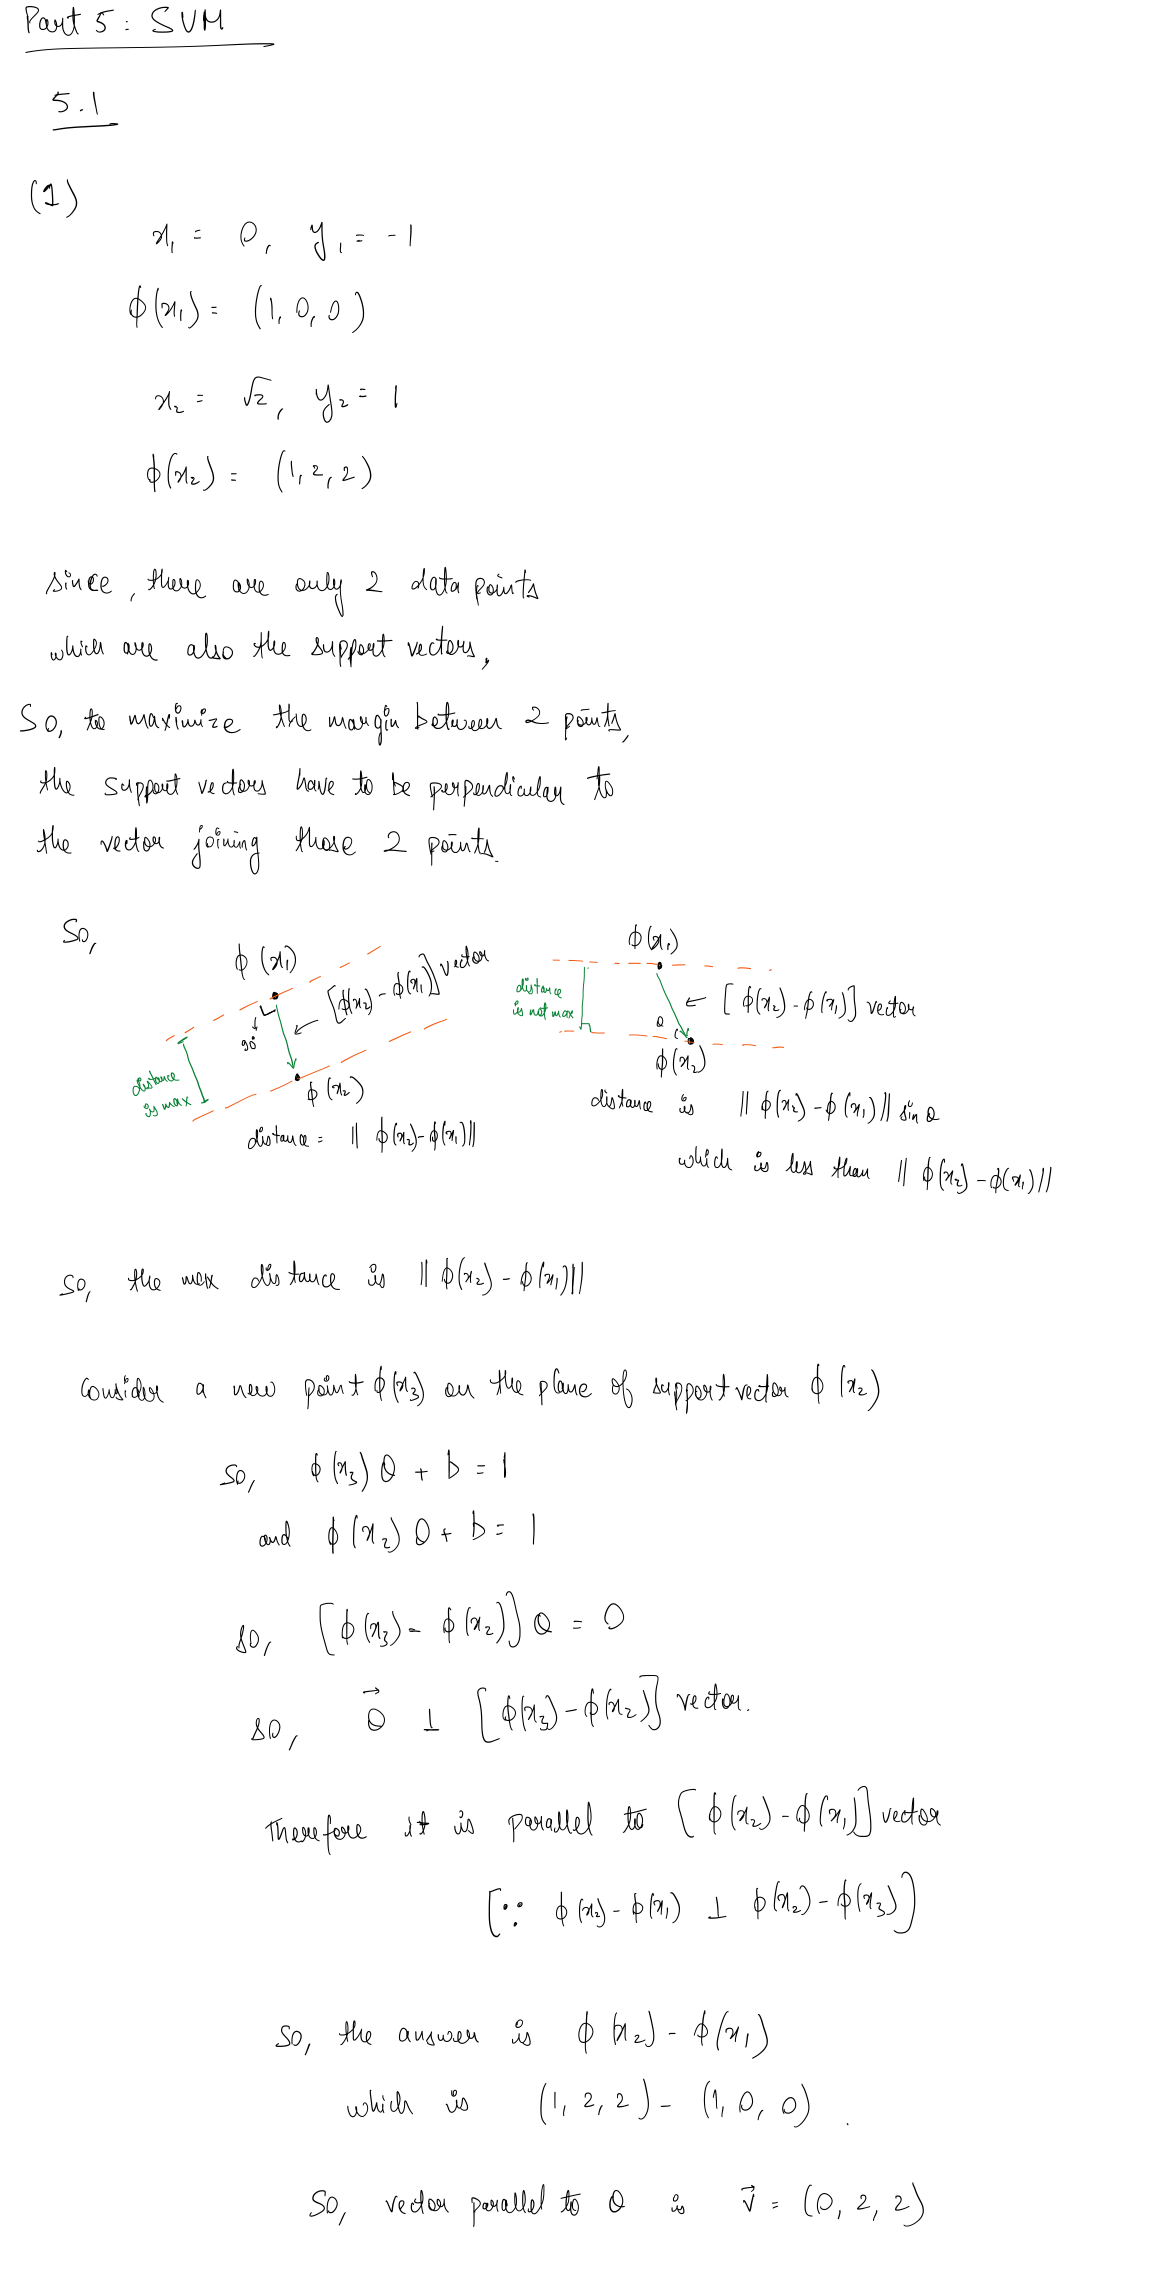 Part 5: SVM
5.1
(1)
x₁ = 0, y₁ = -1
ϕ(x₁) = (1, 0, 0)
x₂ = √2, y₂ = 1
ϕ(x₂) = (1, 2, 2)
since, there are only 2 data points
which are also the support vectors,
So, to maximize the margin between 2 points,
the support vectors have to be perpendicular to
the vector joining those 2 points.
So,
ϕ(x₁)
[ϕ(x₂) - ϕ(x₁)] vector
90°
distance
is max
ϕ(x₂)
distance = || ϕ(x₂) - ϕ(x₁) ||
ϕ(x₁)
distance
is not max
← [ϕ(x₂) - ϕ(x₁)] vector
θ
ϕ(x₂)
distance is || ϕ(x₂) - ϕ(x₁) || sin θ
which is less than || ϕ(x₂) - ϕ(x₁) ||
So, the max distance is || ϕ(x₂) - ϕ(x₁) ||
Consider a new point ϕ(x₃) on the plane of support vector ϕ(x₂)
So, ϕ(x₃) θ + b = 1
and ϕ(x₂) θ + b = 1
so, [ϕ(x₃) - ϕ(x₂)] θ = 0
so, θ⃗ ⊥ [ϕ(x₃) - ϕ(x₂)] vector.
Therefore it is parallel to [ϕ(x₂) - ϕ(x₁)] vector
[∵ ϕ(x₂) - ϕ(x₁) ⊥ ϕ(x₂) - ϕ(x₃)]
So, the answer is ϕ(x₂) - ϕ(x₁)
which is (1, 2, 2) - (1, 0, 0) .
So, vector parallel to θ is v⃗ = (0, 2, 2)